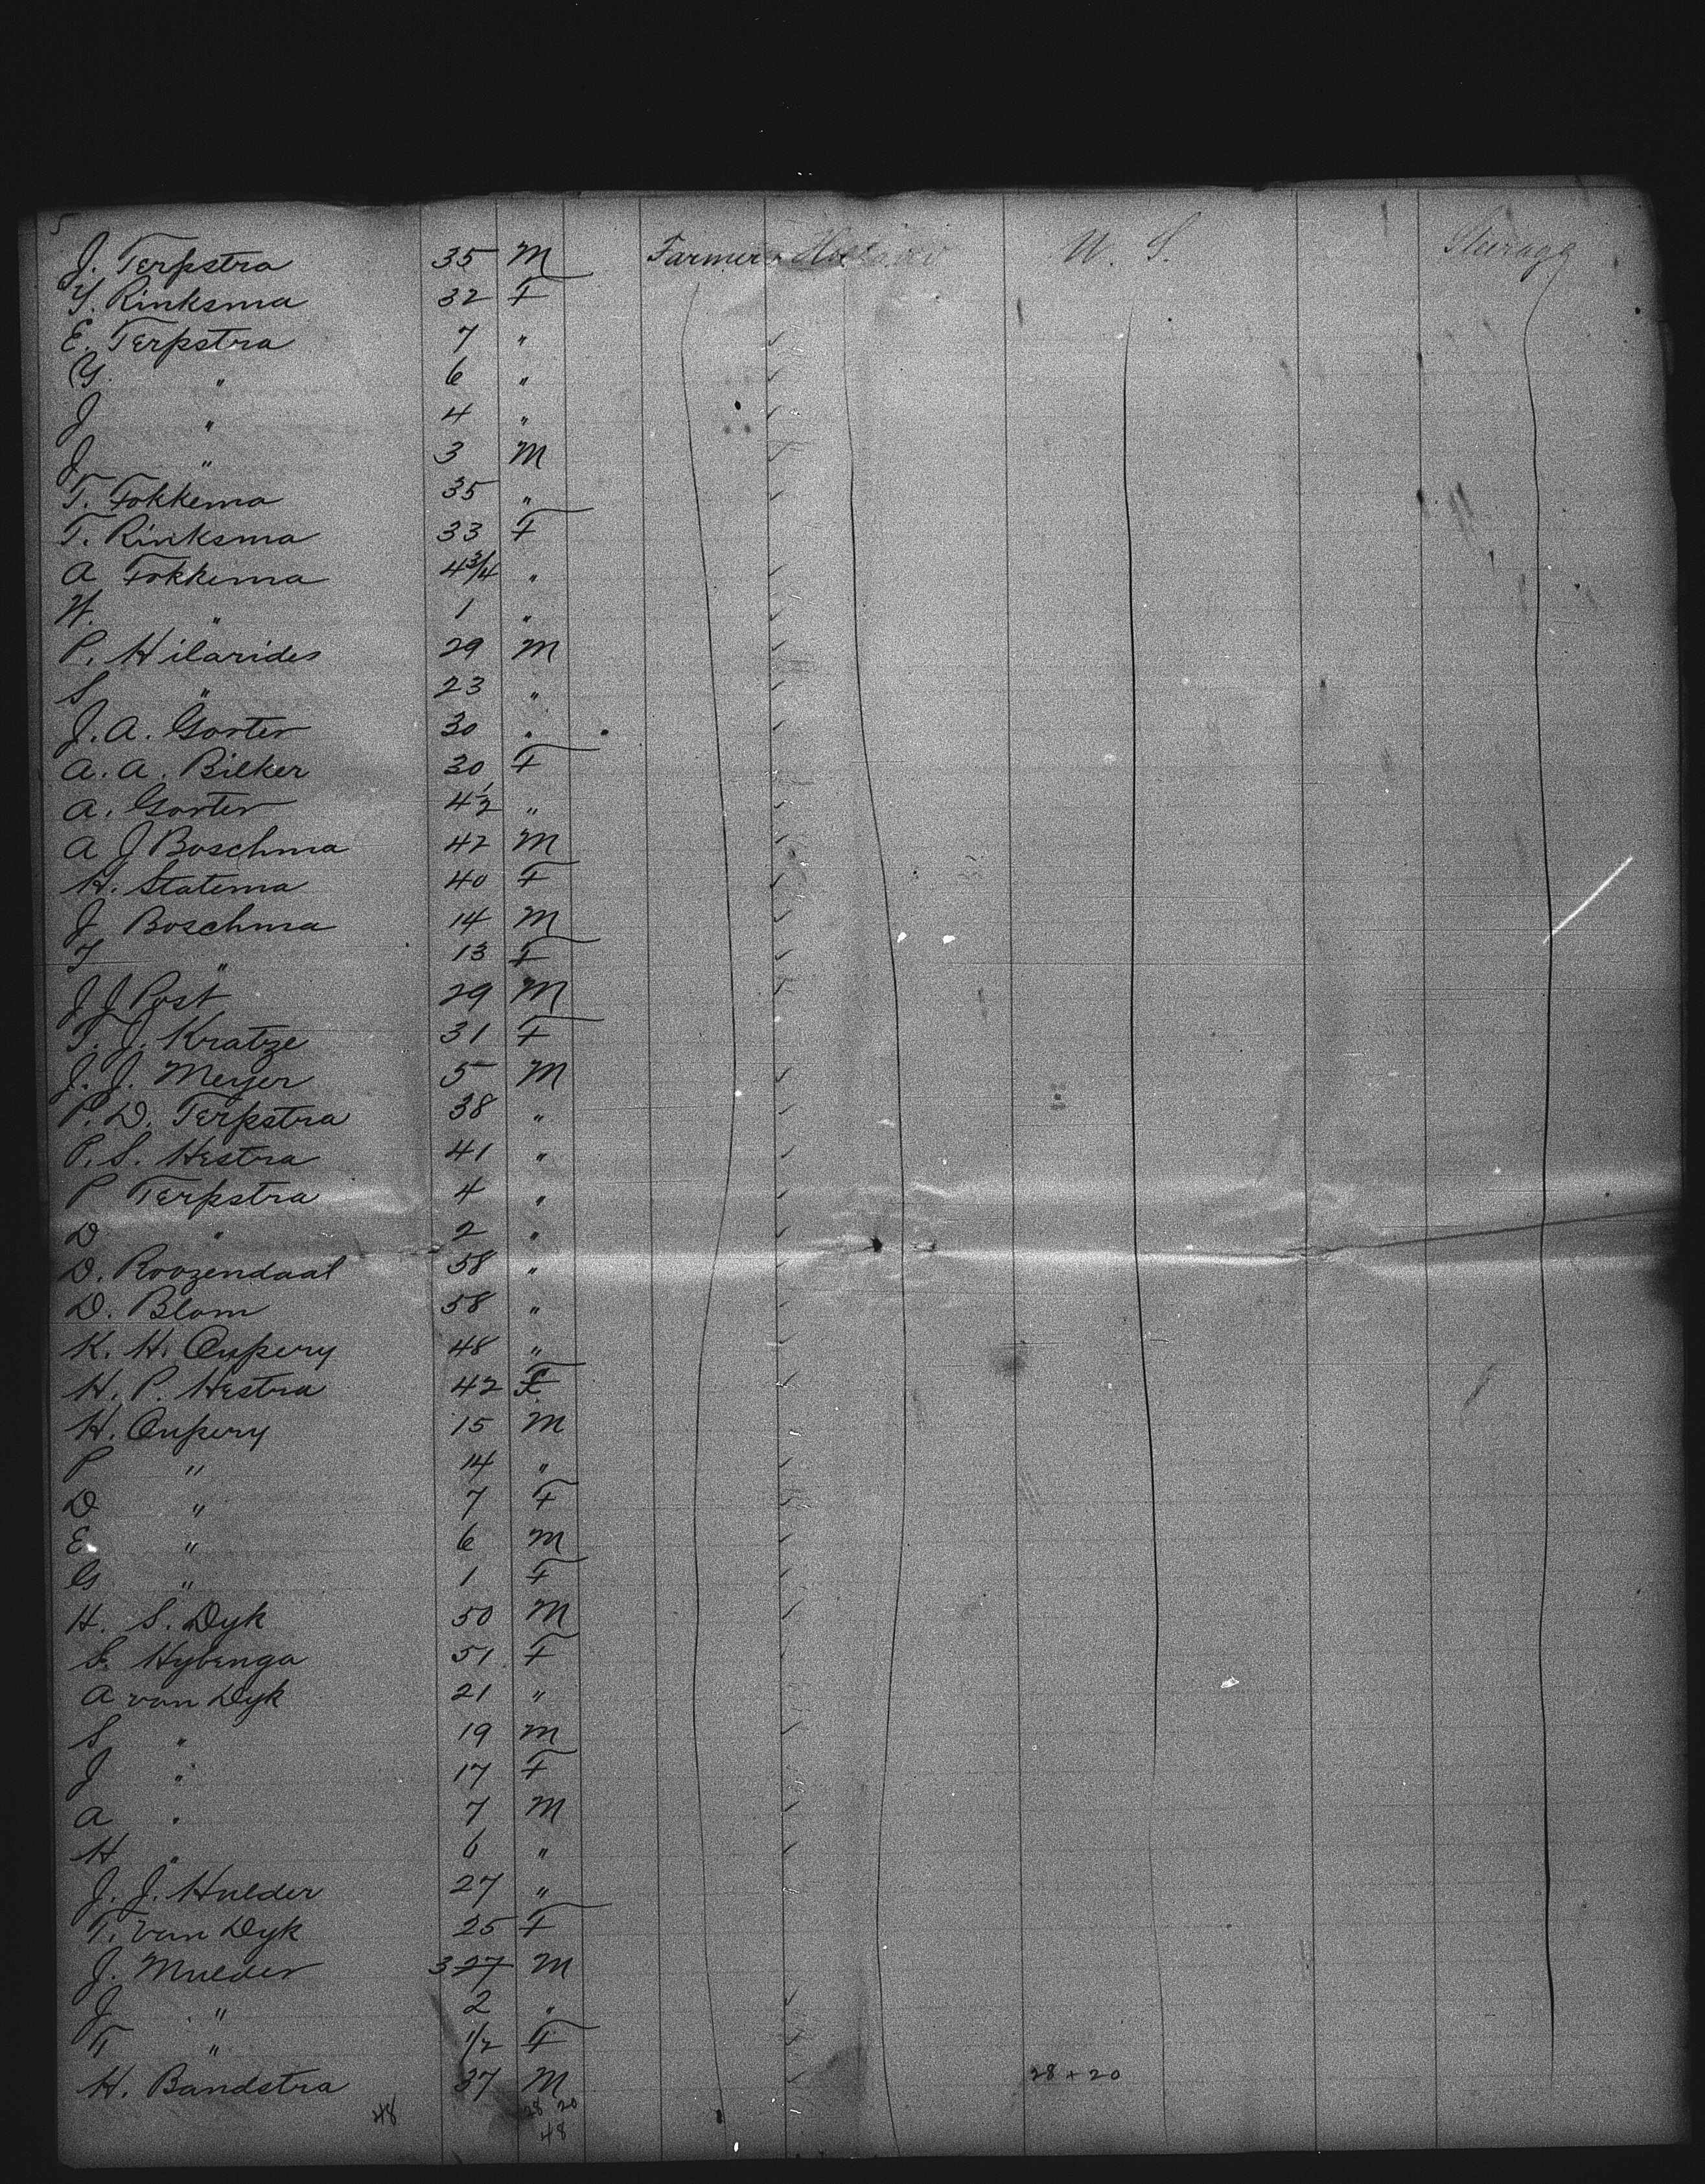 5
J. Terpstra 35 M Farmer Holland U. S. Steerage
Y. Rinksma 32 F
E. Terpstra 7 "
Y. " 6 "
J " 4 "
J " 3 M
T. Fokkema 35 "
T. Rinksma 33 F
A Fokkema 4 3/4 "
W. " 1 "
P. Hilarides 29 M
S " 23 "
J. A. Gorter 30 "
A. A. Bilker 30 F
A. Gorter 4 1/2 "
A J Boschma 42 M
H. Statema 40 F
J Boschma 14 M
T " 13 F
J J Post 29 M
T. J. Kratze 31 F
J. J. Meyer 5 M
P. D. Terpstra 38 "
P. S. Hestra 41 "
P Terpstra 4 "
D " 2 "
D. Roozendaal 58 "
D. Blom 58 "
K. H. Cupery 48 "
H. P. Hestra 42 F
H. Cupery 15 M
P " 14 "
D " 7 F
E " 6 M
G " 1 F
H. S. Dyk 50 M
S. Hybenga 51 F
A van Dyk 21 "
S " 19 M
J " 17 F
A " 7 M
H " 6 "
J. J. Hulder 27 "
T. van Dyk 25 F
J. Mulder 3 27 M
J " 2 "
T " 1/2 F
H. Bandstra 37 M 28 + 20
48 28 20
48